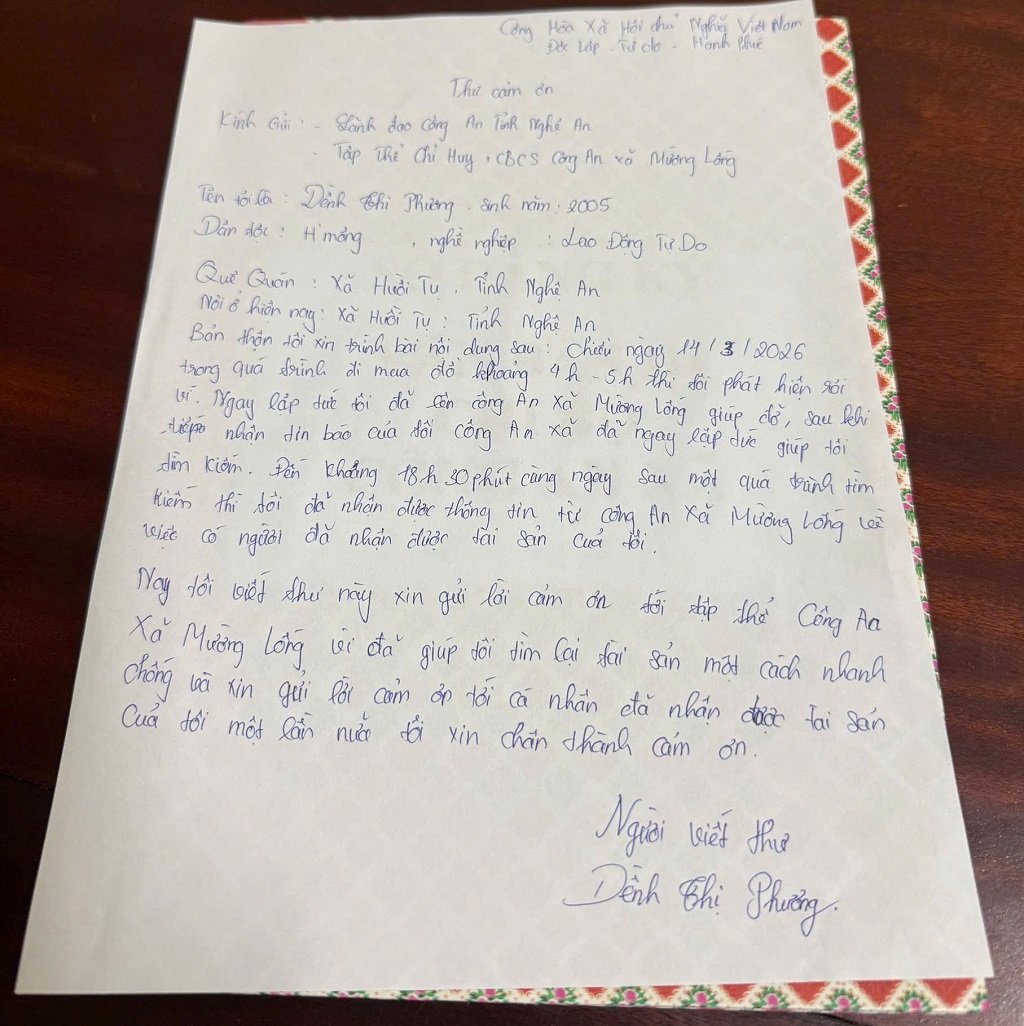 Cộng Hòa Xã Hội chủ Nghĩa Việt Nam
Độc Lập - Tự do - Hạnh Phúc
Thư cảm ơn
Kính Gửi : - Lãnh đạo Công An Tỉnh Nghệ An
- Tập Thể Chỉ Huy , CBCS Công An xã Mường Lống
Tên tôi là : Dềnh Thị Phương . sinh năm : 2005
Dân tộc : H'mông , nghề nghiệp : Lao Động Tự Do
Quê Quán : Xã Huồi Tụ . Tỉnh Nghệ An
Nơi ở hiện nay : Xã Huồi Tụ : Tỉnh Nghệ An
Bản thân tôi xin trình bài nội dung sau : chiều ngày 14/3/2026
trong quá trình đi mua đồ khoảng 4h - 5h thì tôi phát hiện rơi
ví. Ngay lập tức tôi đã lên công An Xã Mường Lống giúp đỡ, sau khi
tiếp nhận tin báo của tôi công An xã đã ngay lập tức giúp tôi
tìm kiếm. Đến khoảng 18h 30 phút cùng ngày sau một quá trình tìm
kiếm thì tôi đã nhận được thông tin từ công An Xã Mường Lống về
việc có người đã nhận được tài sản của tôi.
Nay tôi viết thư này xin gửi lời cảm ơn tới tập thể Công An
Xã Mường Lống vì đã giúp tôi tìm lại tài sản một cách nhanh
chống và xin gửi lời cảm ơn tới cá nhân đã nhận được tài sản
của tôi một lần nữa tôi xin chân thành cảm ơn.
Người viết thư
Dềnh Thị Phương.